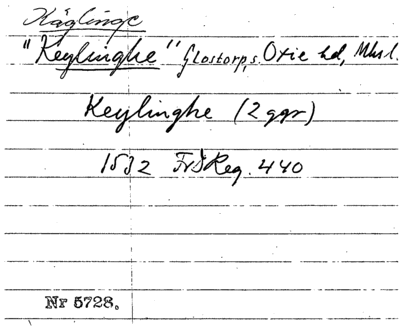 Käglinge
"Keylinghe" Glostorps, Oxie hd, Mhsl.
Keylinghe (2 ggr)
1532 FrIReg. 440
Nr 5728.